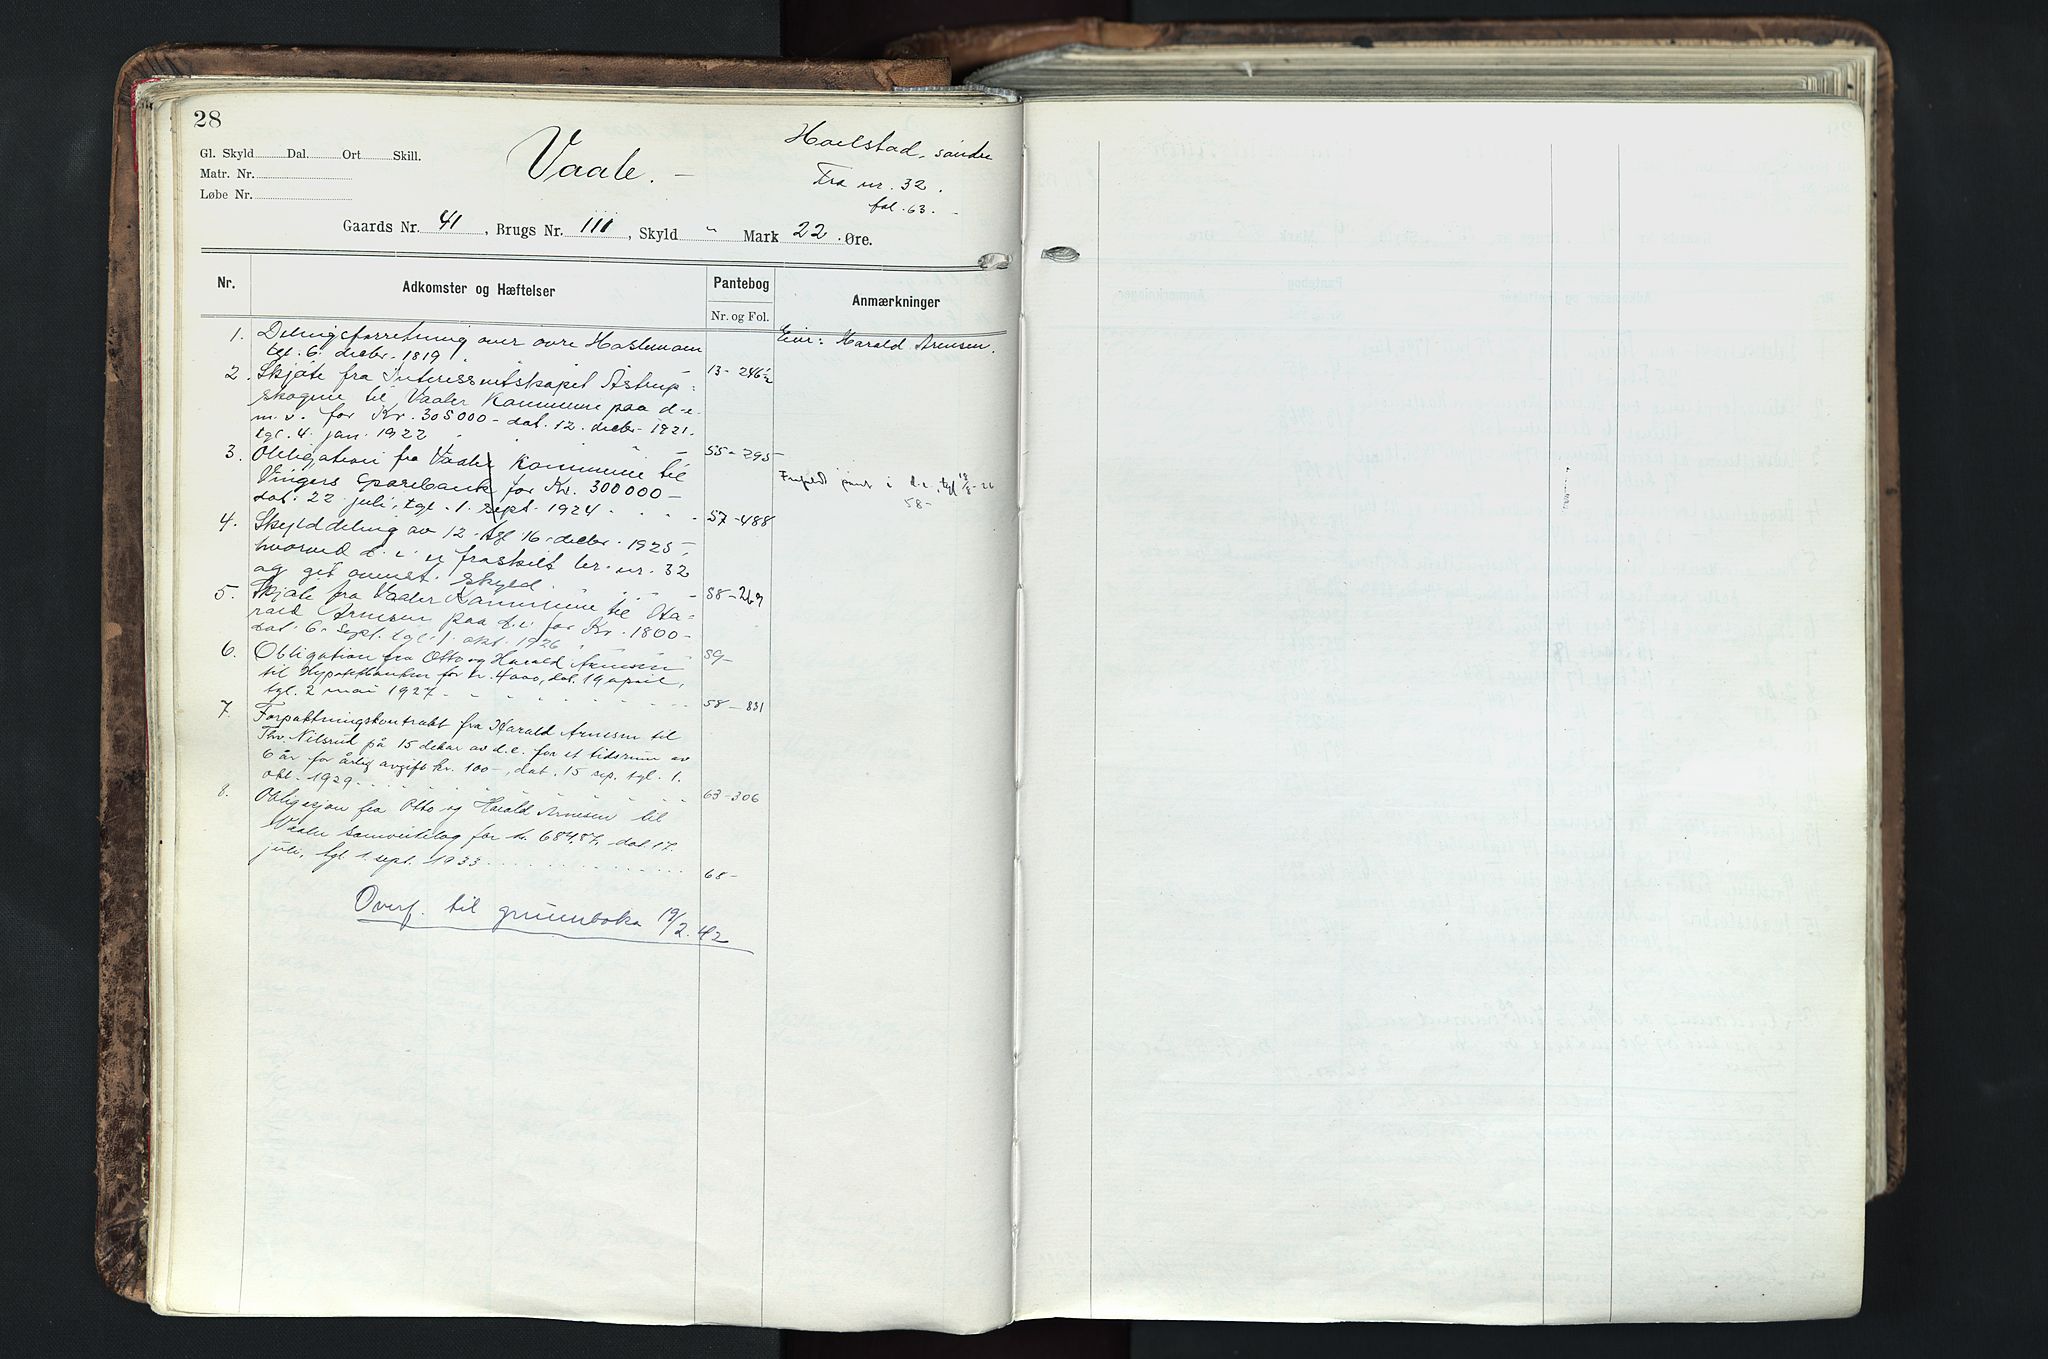 28
Gl. Skyld Dal. Ort Skill.
Matr. Nr.
Løbe Nr.
Vaale. –
Hoelstad, søndre
Fra nr. 32.
fol. 63. –
Gaards Nr. 41, Brugs Nr. 111, Skyld " Mark 22 Øre.
Nr. Adkomster og Hæftelser Pantebog Nr. og Fol. Anmærkninger
1. Delingsforretning over øvre Haslemoen Eier: Harald Arnesen.
tgl. 6. decbr. 1819. 13 - 246½
2. Skjøte fra Interessentskapet Åstrup-
skogene til Vaaler Kommune paa d. e.
m. v. for Kr. 305000 - dat. 12. decbr. 1921.
tgl. 4. jan. 1922 55 - 295
3. Obligation fra Vaaler Kommune til
Vingers Sparebank for Kr. 300000 – pant i d. e. tgl 18/8-26
dat. 22. juli, tgl. 1. sept. 1924 57 - 488 58 -
4. Skylddeling av 12. tgl. 16. decbr. 1925,
hvorved d. e. er fraskilt br. nr. 32
og git anmt. skyld. 58 - 269
5. Skjøte fra Vaaler Kommune til Ha-
rald Arnesen paa d. e. for Kr. 1800 –
dat. 6. sept. tgl. 1. okt. 1926 59 -
6. Obligation fra Otto og Harald Arnesen
til Hypotekbanken for kr. 4000, dat. 19 april,
tgl. 2 mai 1927 58 - 831
7. Forpaktningskontrakt fra Harald Arnesen til
Thv. Nilsrud på 15 dekar av d. e. for et tidsrum av
6 år for årlig avgift kr. 100 -, dat. 15 sep. tgl. 1.
okt. 1929 63 - 306
8. Obligasjon fra Otto og Harald Arnesen til
Vaaler Samvirkelag for kr. 684,57, dat. 17.
juli, tgl 1. sept. 1933 68 -
Overf. til grunnboka 19/2. 42